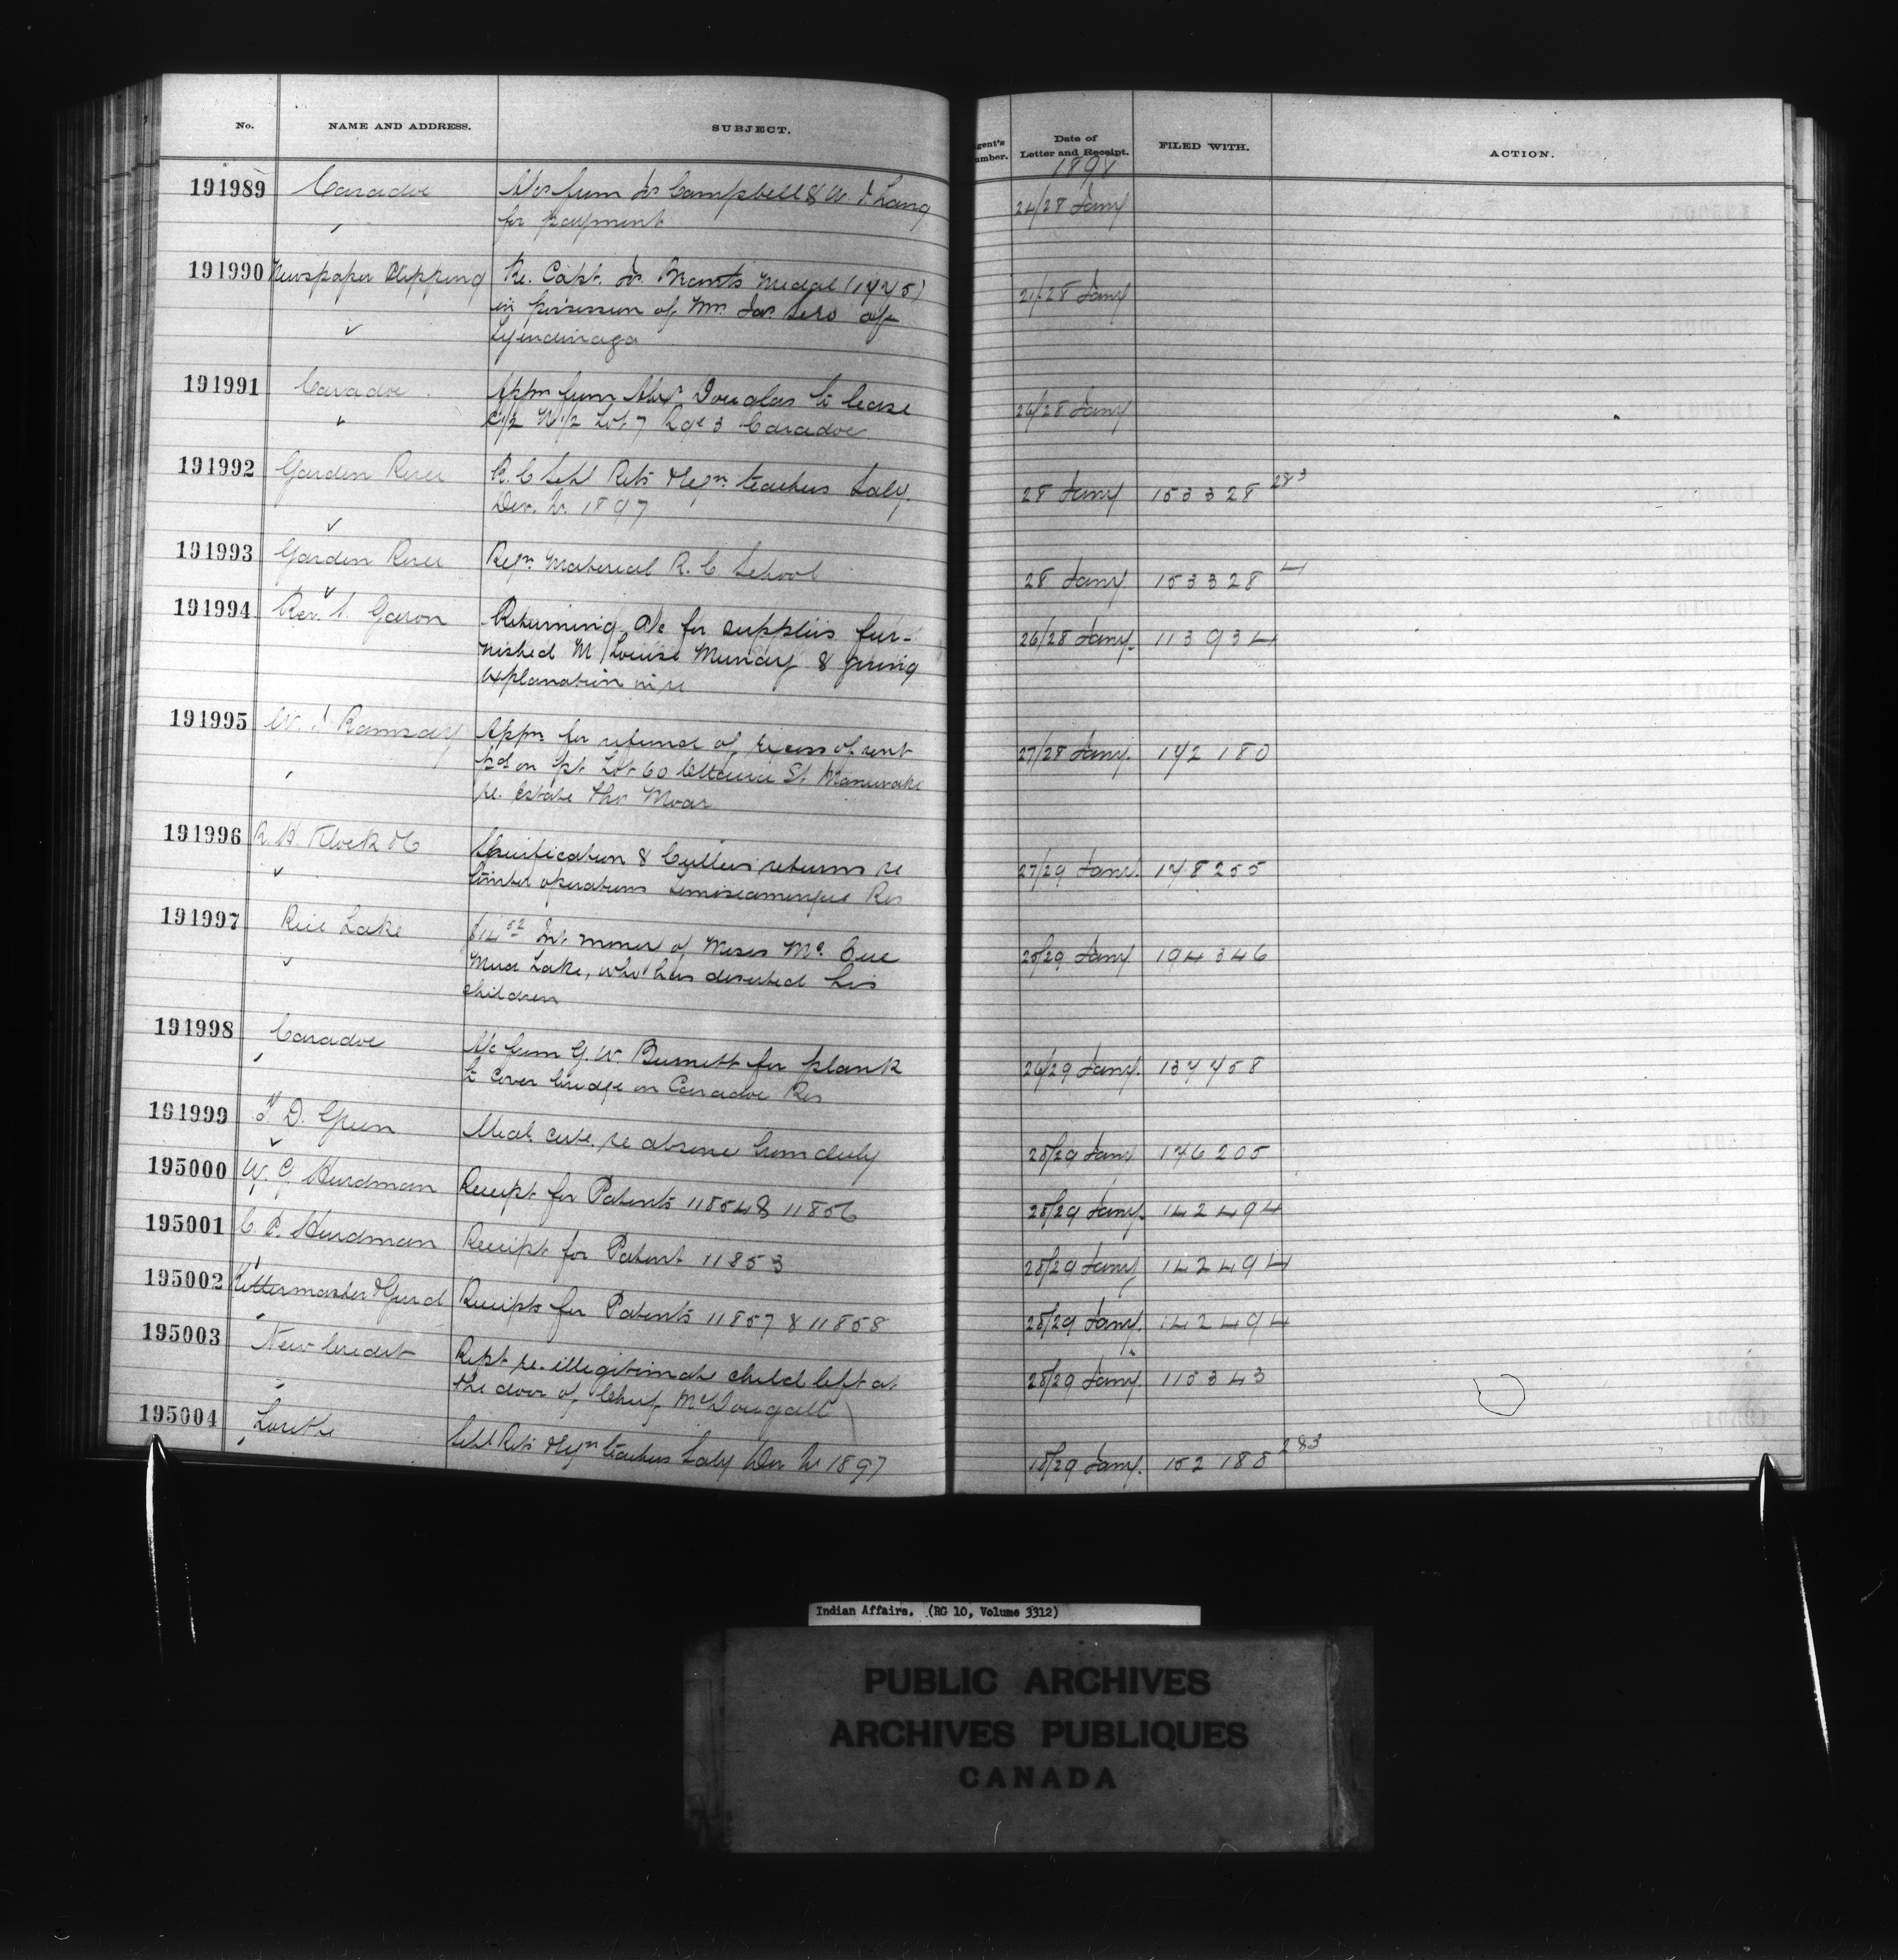 No. NAME AND ADDRESS. SUBJECT. gent's umber. Date of Letter and Receipt. FILED WITH. ACTION.
1898
191989 Caradoc A/cs from Campbell & W Lang 24/28 Jany
" for payment
191990 Newspaper Clipping Re. Capt. Jos. Brants Medal (1775) 21/28 Jany
in possession of Mr. Jas. Sero of
Tyendinaga
191991 Caradoc Appn from Alexr Douglas to lease 26/28 Jany
" N 1/2 Lot 7 Rge 3 Caradoc
191992 Garden River R.C Schl Rets & teachers Saly. 28 Jany 153328 283
Dec. Qr. 1897
191993 Garden River Reqn. Material R. C. School 28 Jany 153328 4
191994 Rev. Garon Returning A/c for supplies fur- 26/28 Jany. 113934
nished M. Louise Munday & giving
explanation in re
191995 W. J. Ramsay Appn for refund of excess of rent 27/28 Jany. 142180
pd on pt Lot 60 St.
re. Estate Thos Moar
191996 R. H. Klock & Co Specification & Cullers returns re 27/29 Jany. 148255
timber operations Temiscamingue Res
191997 Rice Lake $14 52 Int. money of Moses McCue 25/29 Jany 194346
Mud Lake, who has deserted his
children
191998 Caradoc A/c from G. W. Burnett for plank 26/29 Jany. 137758
to cover bridge on Caradoc Res
191999 T. D. Green Medl. cert. re absence from duty 28/29 Jany 176205
195000 W. G. Hurdman Receipt for Patents 11854 & 11856 28/29 Jany. 142494
195001 C. P. Hurdman Receipt for Patent 11853 28/29 Jany 142494
195002 Kittermaster & Gurd Receipts for Patents 11857 & 11858 28/29 Jany. 142494
195003 New Credit Rept re. illegitimate child left at 28/29 Jany. 115343
" the door of Chief McDougall
195004 Lorette Schl Rets & teachers Saly Dec Qr 1897 18/29 Jany. 152188 283
Indian Affairs. (RG 10, Volume 3312)
PUBLIC ARCHIVES
ARCHIVES PUBLIQUES
CANADA